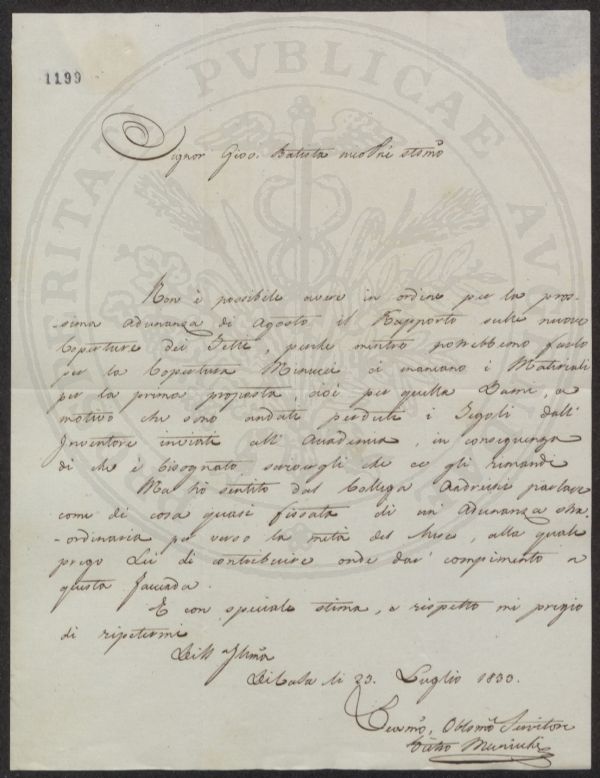 1199
PROSPERITATI PVBLICAE AVGENDAE
Signor Giov. Batista
Non è possibile avere in ordine per la pros-
-sima adunanza di Agosto il Rapporto sulle nuove
Coperture dei Tetti, perché mentre potrebbono farlo
per la Copertura Minucci ci mancano i Materiali
per la prima proposta, cioè per quella a
motivo che sono andate perduti i Tegoli dall'
Inventore inviate all' Accademia, in conseguenza
di che è bisognato scrivergli che ce gli rimandi
Ma hò sentito dal Collega Andreini parlare
come di cosa quasi fissata di un' Adunanza stra-
-ordinaria per verso la metà del Mese, alla quale
prego Lei di contribuire onde dar compimento a
questa faccenda.
E con speciale stima, e rispetto mi pregio
di ripetermi
Di Casa li 23. Luglio 1830.
Servitore